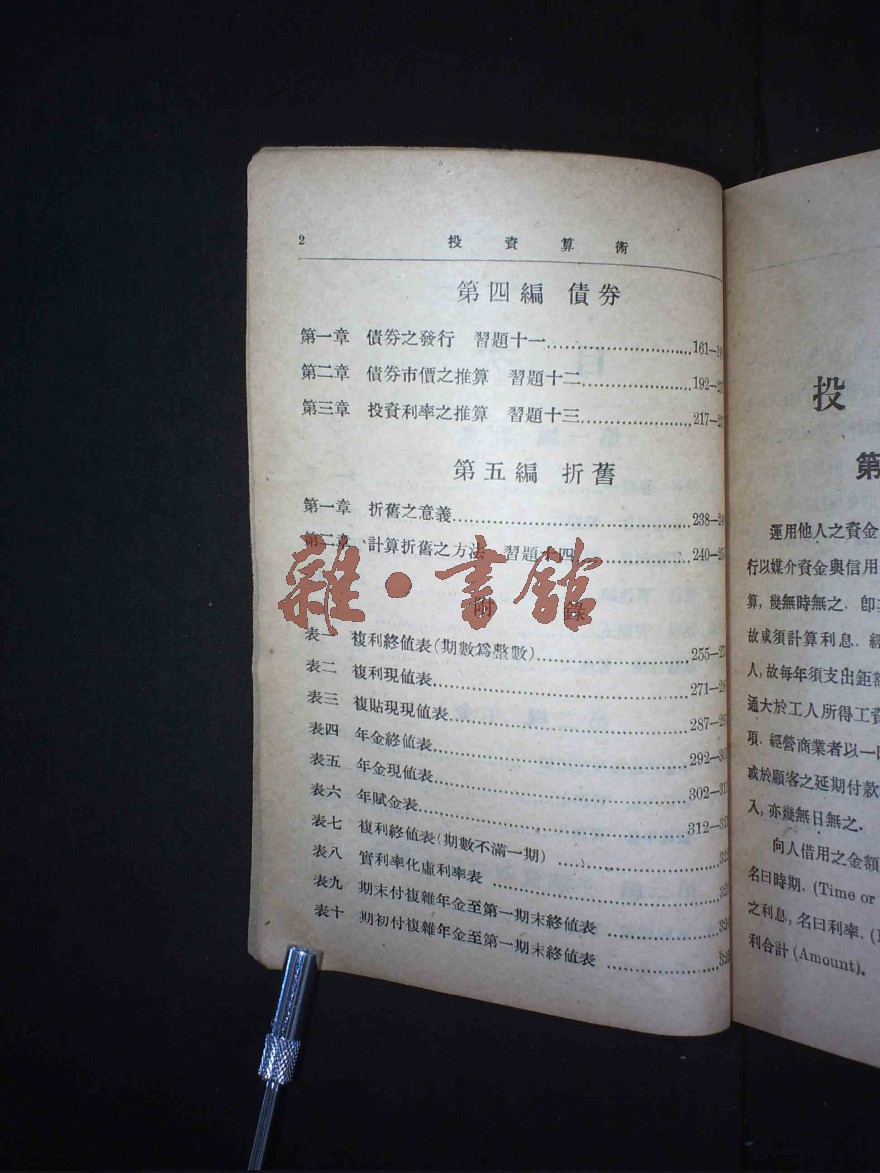 2 投資算術
第四編 債券
第一章 債券之發行 習題十一 161—1
第二章 債券市價之推算 習題十二 192—2
第三章 投資利率之推算 習題十三 217—2
第五編 折舊
第一章 折舊之意義 238—2
第二章 計算折舊之方法 習題十四 240—2
雜·書館
附錄
表一 複利終値表(期數爲整數) 255—2
表二 複利現値表 271—2
表三 複貼現現値表 287—2
表四 年金終値表 292—30
表五 年金現値表 302—31
表六 年賦金表 312—32
表七 複利終値表(期數不滿一期) 32
表八 實利率化虛利率表 32
表九 期末付複雜年金至第一期末終値表 32
表十 期初付複雜年金至第一期末終値表 32
投
第
運用他人之資金
行以媒介資金與信用
算,幾無時無之.卽其
故或須計算利息.經
人,故每年須支出鉅額
通大於工人所得工資
項.經營商業者以一
或於顧客之延期付款
入,亦幾無日無之.
向人借用之金額
名曰時期.(Time or
之利息,名曰利率.(
利合計(Amount).